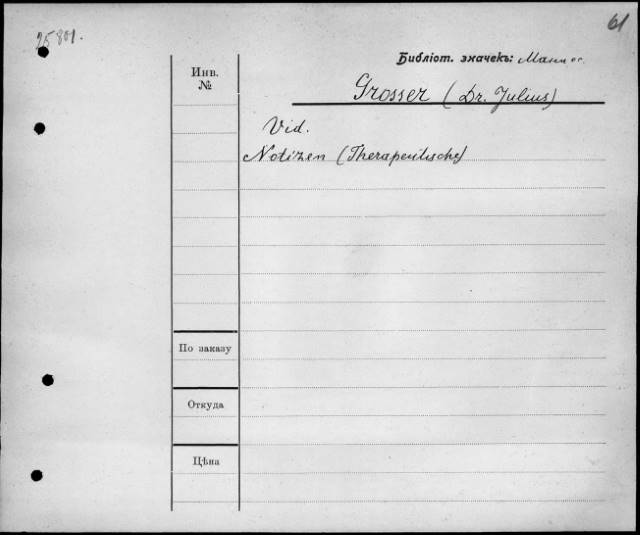 25801.
61
Библіот. значекъ:
Инв.
№
Grosser (Dr. Julius)
Vid.
Notizen (Therapeutische)
По заказу
Откуда
Цѣна